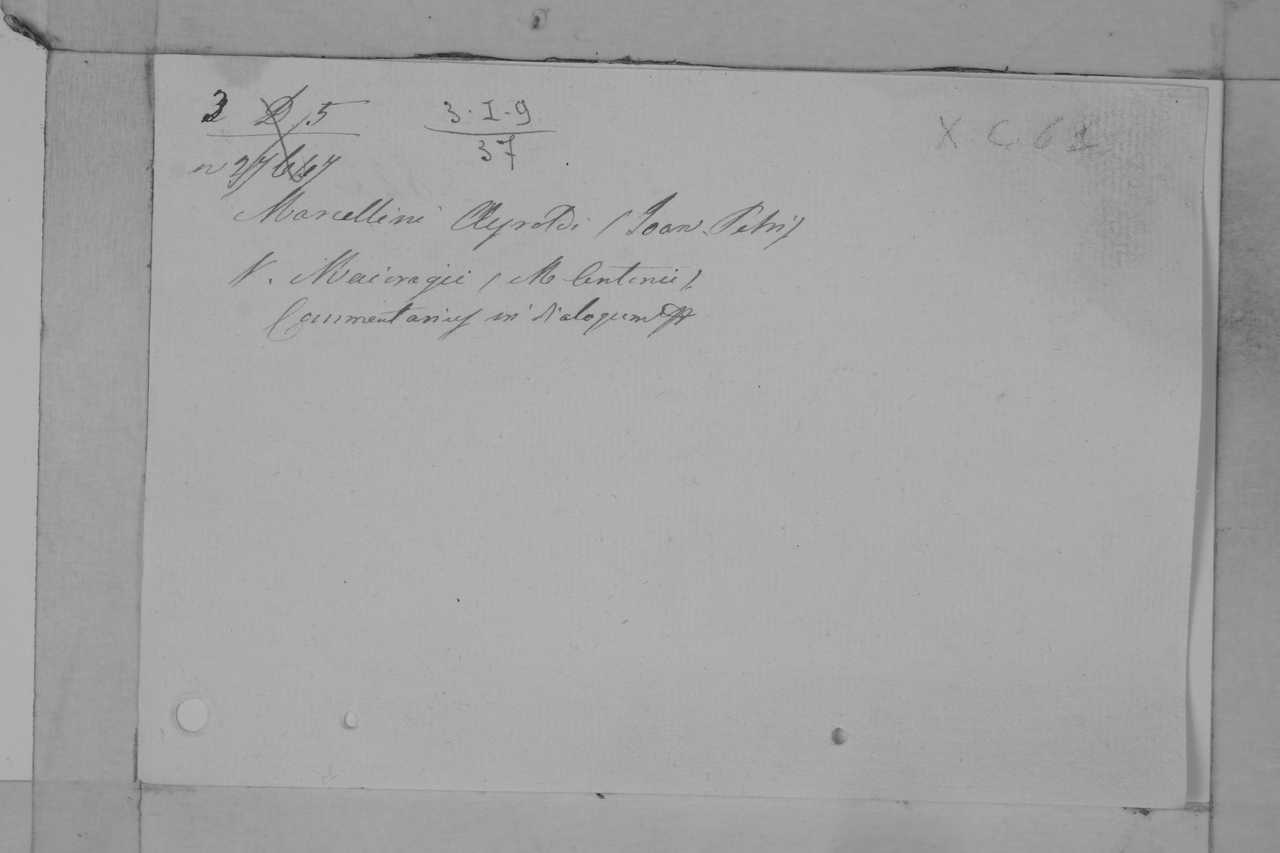 3 D 5 3·I·9 X C 61
n 27667 37
Marcellini Ayroldi (Joan. Petri)
V. Maioragii (M. Antonii)
Commentarius in dialogum